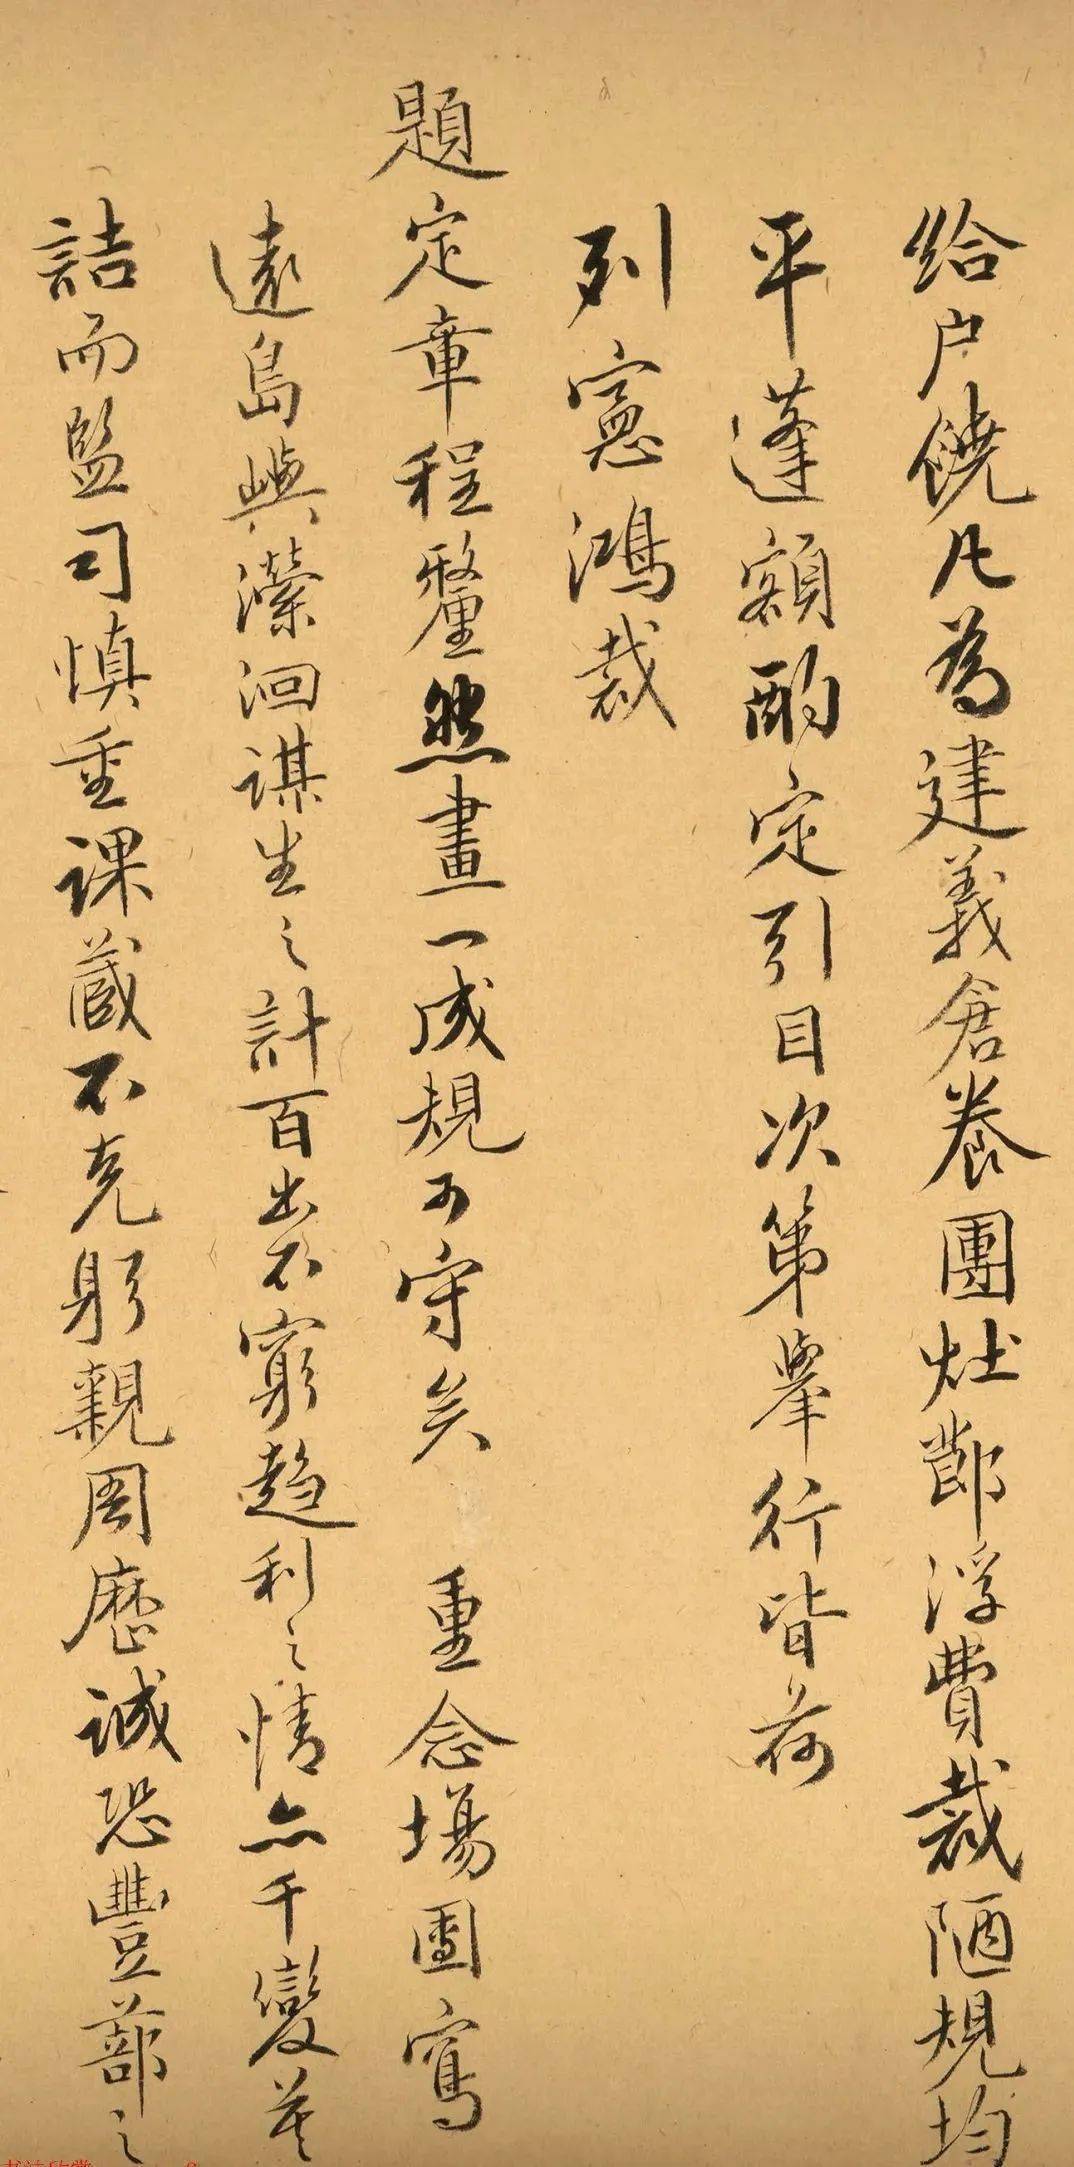 給户饒凡為建義倉養團灶節浮費裁陋規均
平蓬額酌定引目次第舉行皆荷
列憲鴻裁
題定章程釐然畫一成規可守矣 重念場團窵
遠島嶼瀠洄謀生之計百出不窮趨利之情亦千變莫
詰而監司慎重課蔵不克躬親周歷誠恐豐蔀之